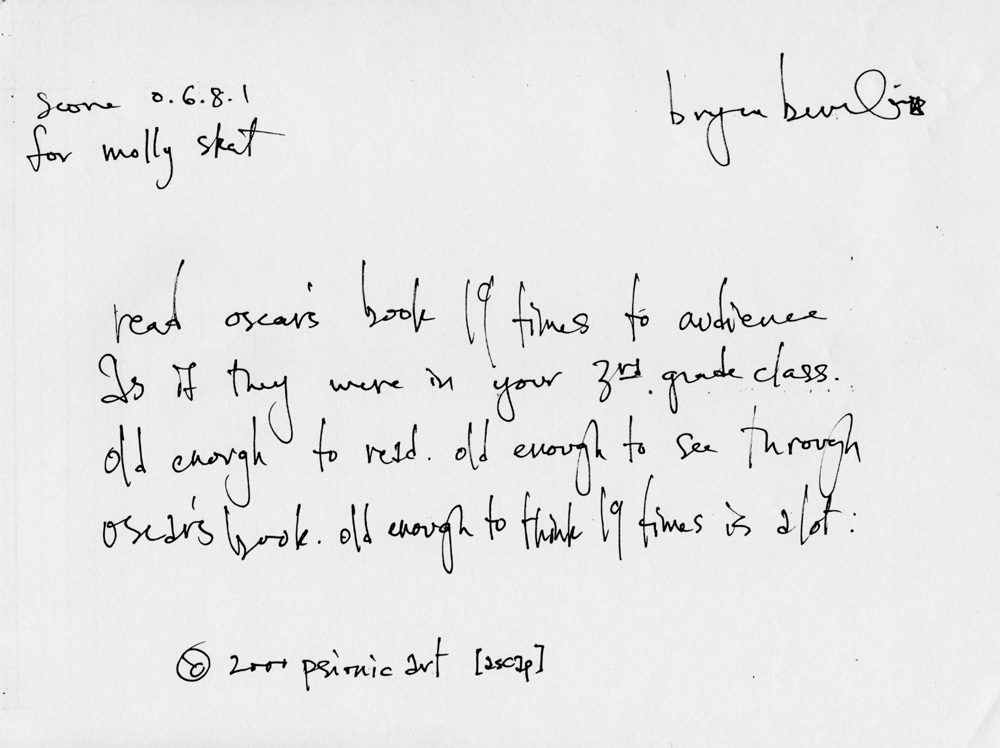 score 0.6.8.1
for molly skat
read oscar's book 19 times to audience
as if they were in your 3rd. grade class.
old enough to read. old enough to see through
oscar's book. old enough to think 19 times is a lot.
© 2000 psionic art [ascap]